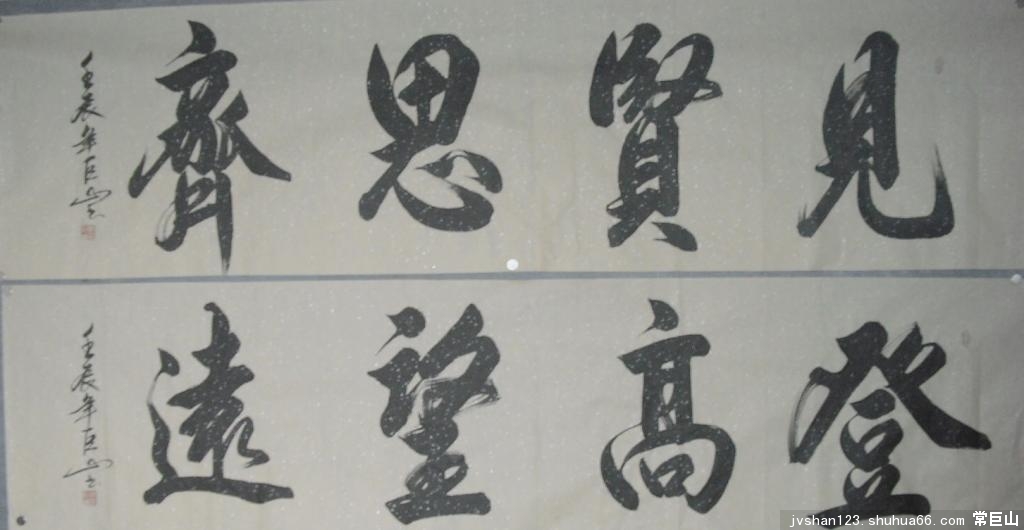 見賢思齊
壬辰年巨山書
登高望遠
壬辰年巨山書
jvshan123.shuhua66.com 常巨山